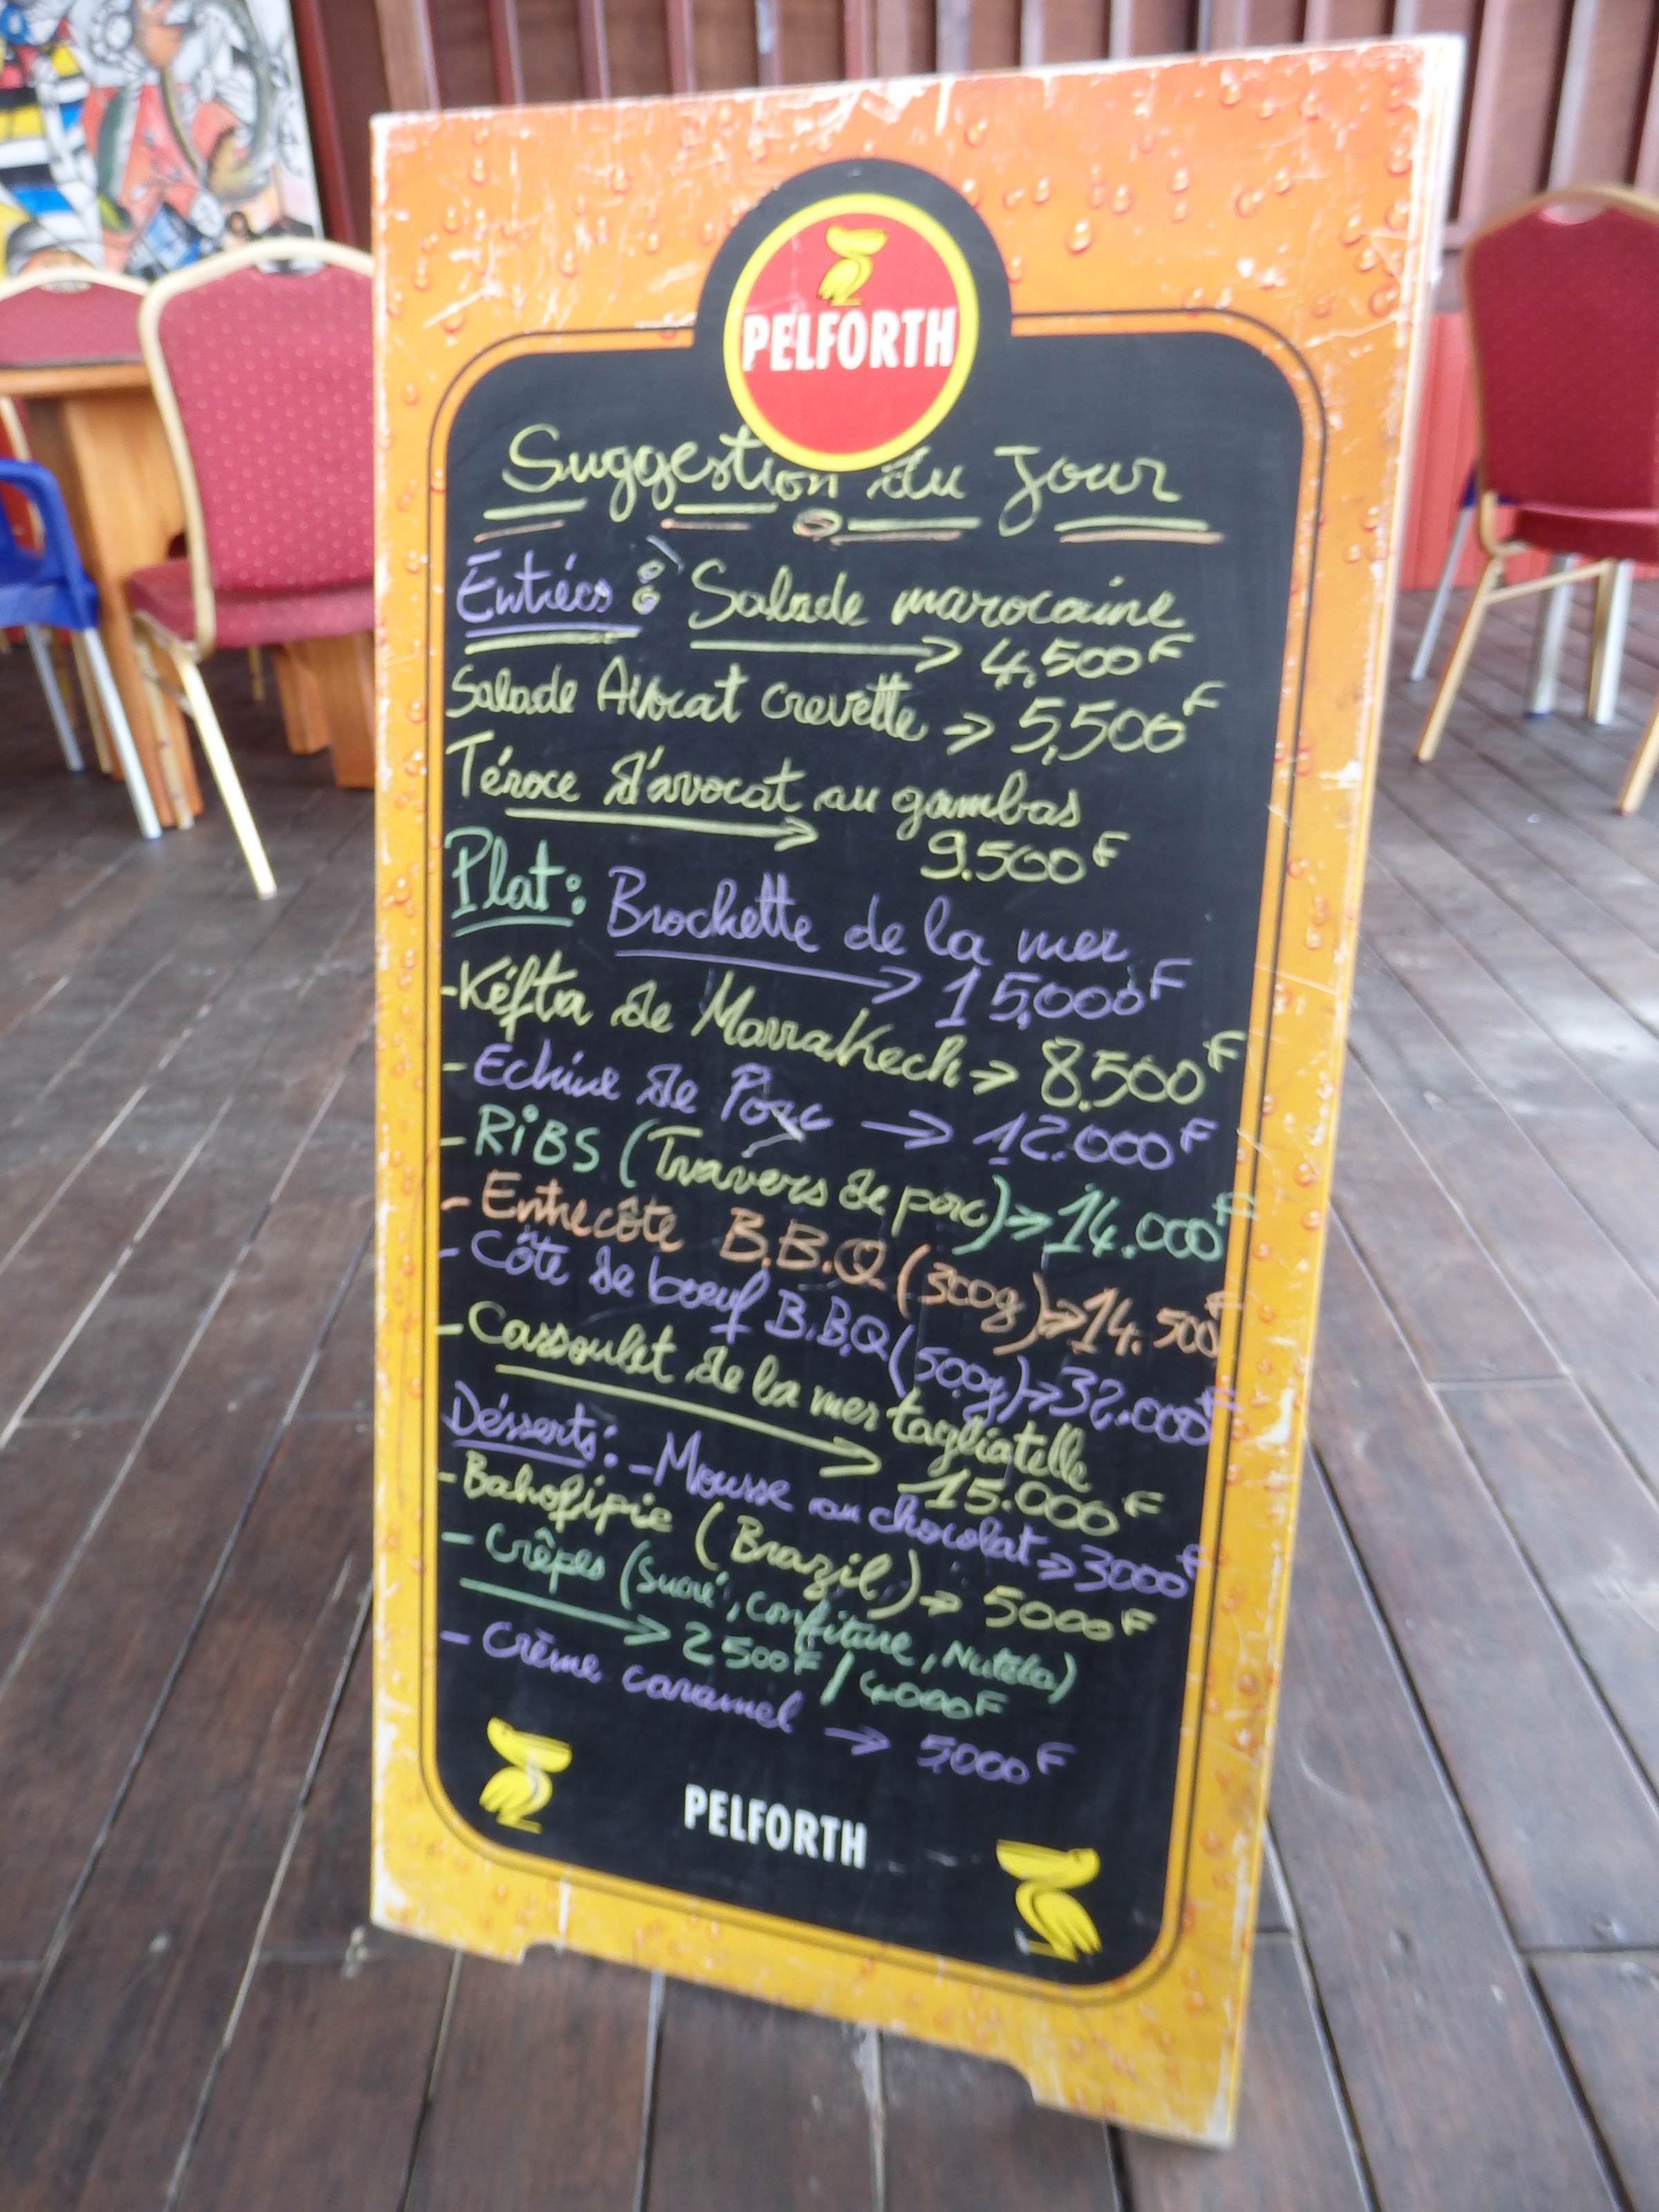 PELFORTH
Suggestion du Jour
Entrées : Salade marocaine
4,500F
Salade Avocat crevette -> 5,500F
Téroce d'avocat au gambas
9.500F
Plat: Brochette de la mer
15,000F
-Kéfta de Marrakech -> 8.500F
- Echine de Porc -> 12.000F
- RiBS (Travers de porc) -> 14.000F
- Entrecôte B.B.Q (300g) -> 14.500F
- Côte de boeuf B.B.Q (500g) -> 32.000F
- Cassoulet de la mer tagliatelle
15.000F
Désserts: - Mousse au chocolat -> 3000F
- Bahofipie (Brazil) -> 5000F
- Crêpes (Sucré, confiture, Nutéla)
-> 2500F / 4000F
- Crème caramel -> 5,000F
PELFORTH